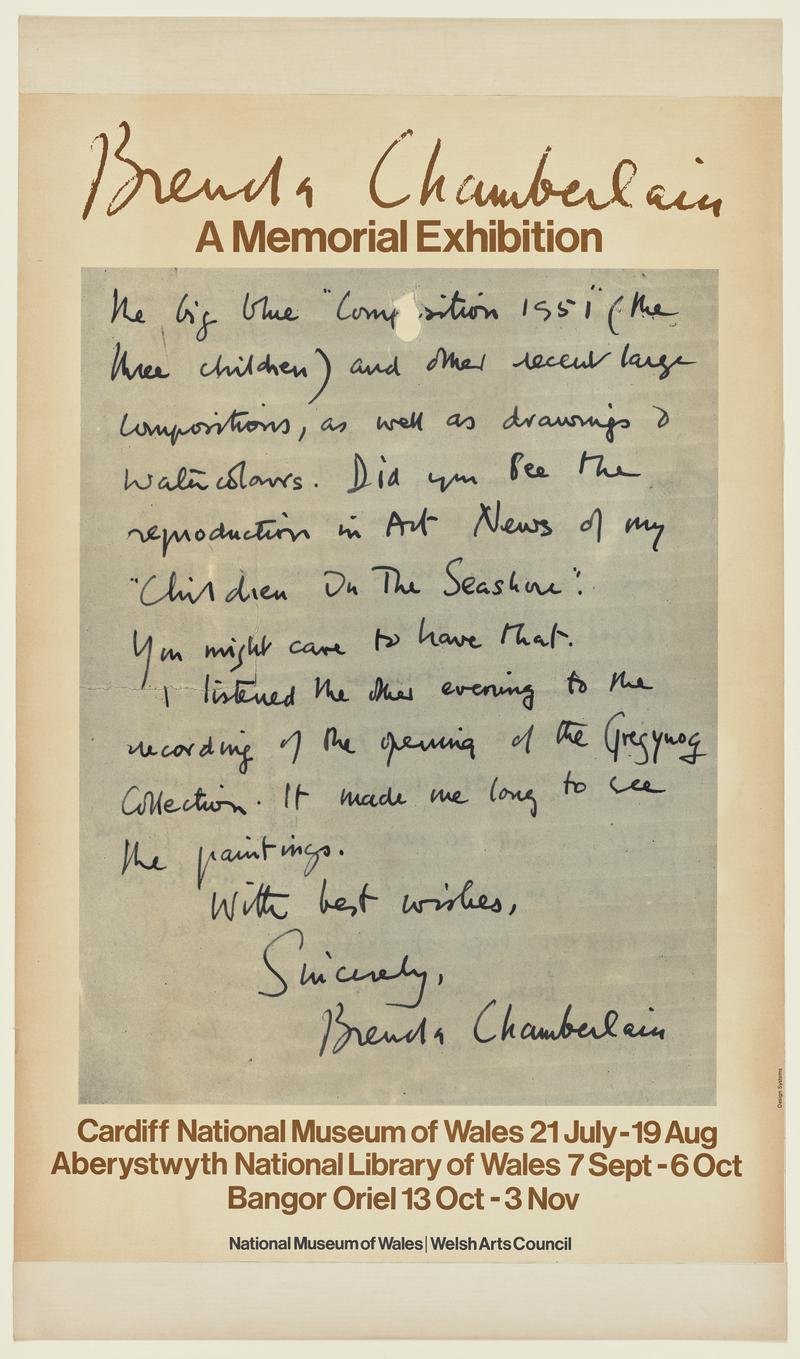 Brenda Chamberlain
A Memorial Exhibition
The big blue "Composition 1951" (the
three children) and other recent large
compositions, as well as drawings &
watercolours. Did you see the
reproduction in Art News of my
"Children On The Seashore".
You might care to have that.
I listened the other evening to the
recording of the opening of the Gregynog
Collection. It made me long to see
the paintings.
With best wishes,
Sincerely,
Brenda Chamberlain
Cardiff National Museum of Wales 21 July-19 Aug
Aberystwyth National Library of Wales 7 Sept-6 Oct
Bangor Oriel 13 Oct-3 Nov
National Museum of Wales| Welsh Arts Council
Design Systems